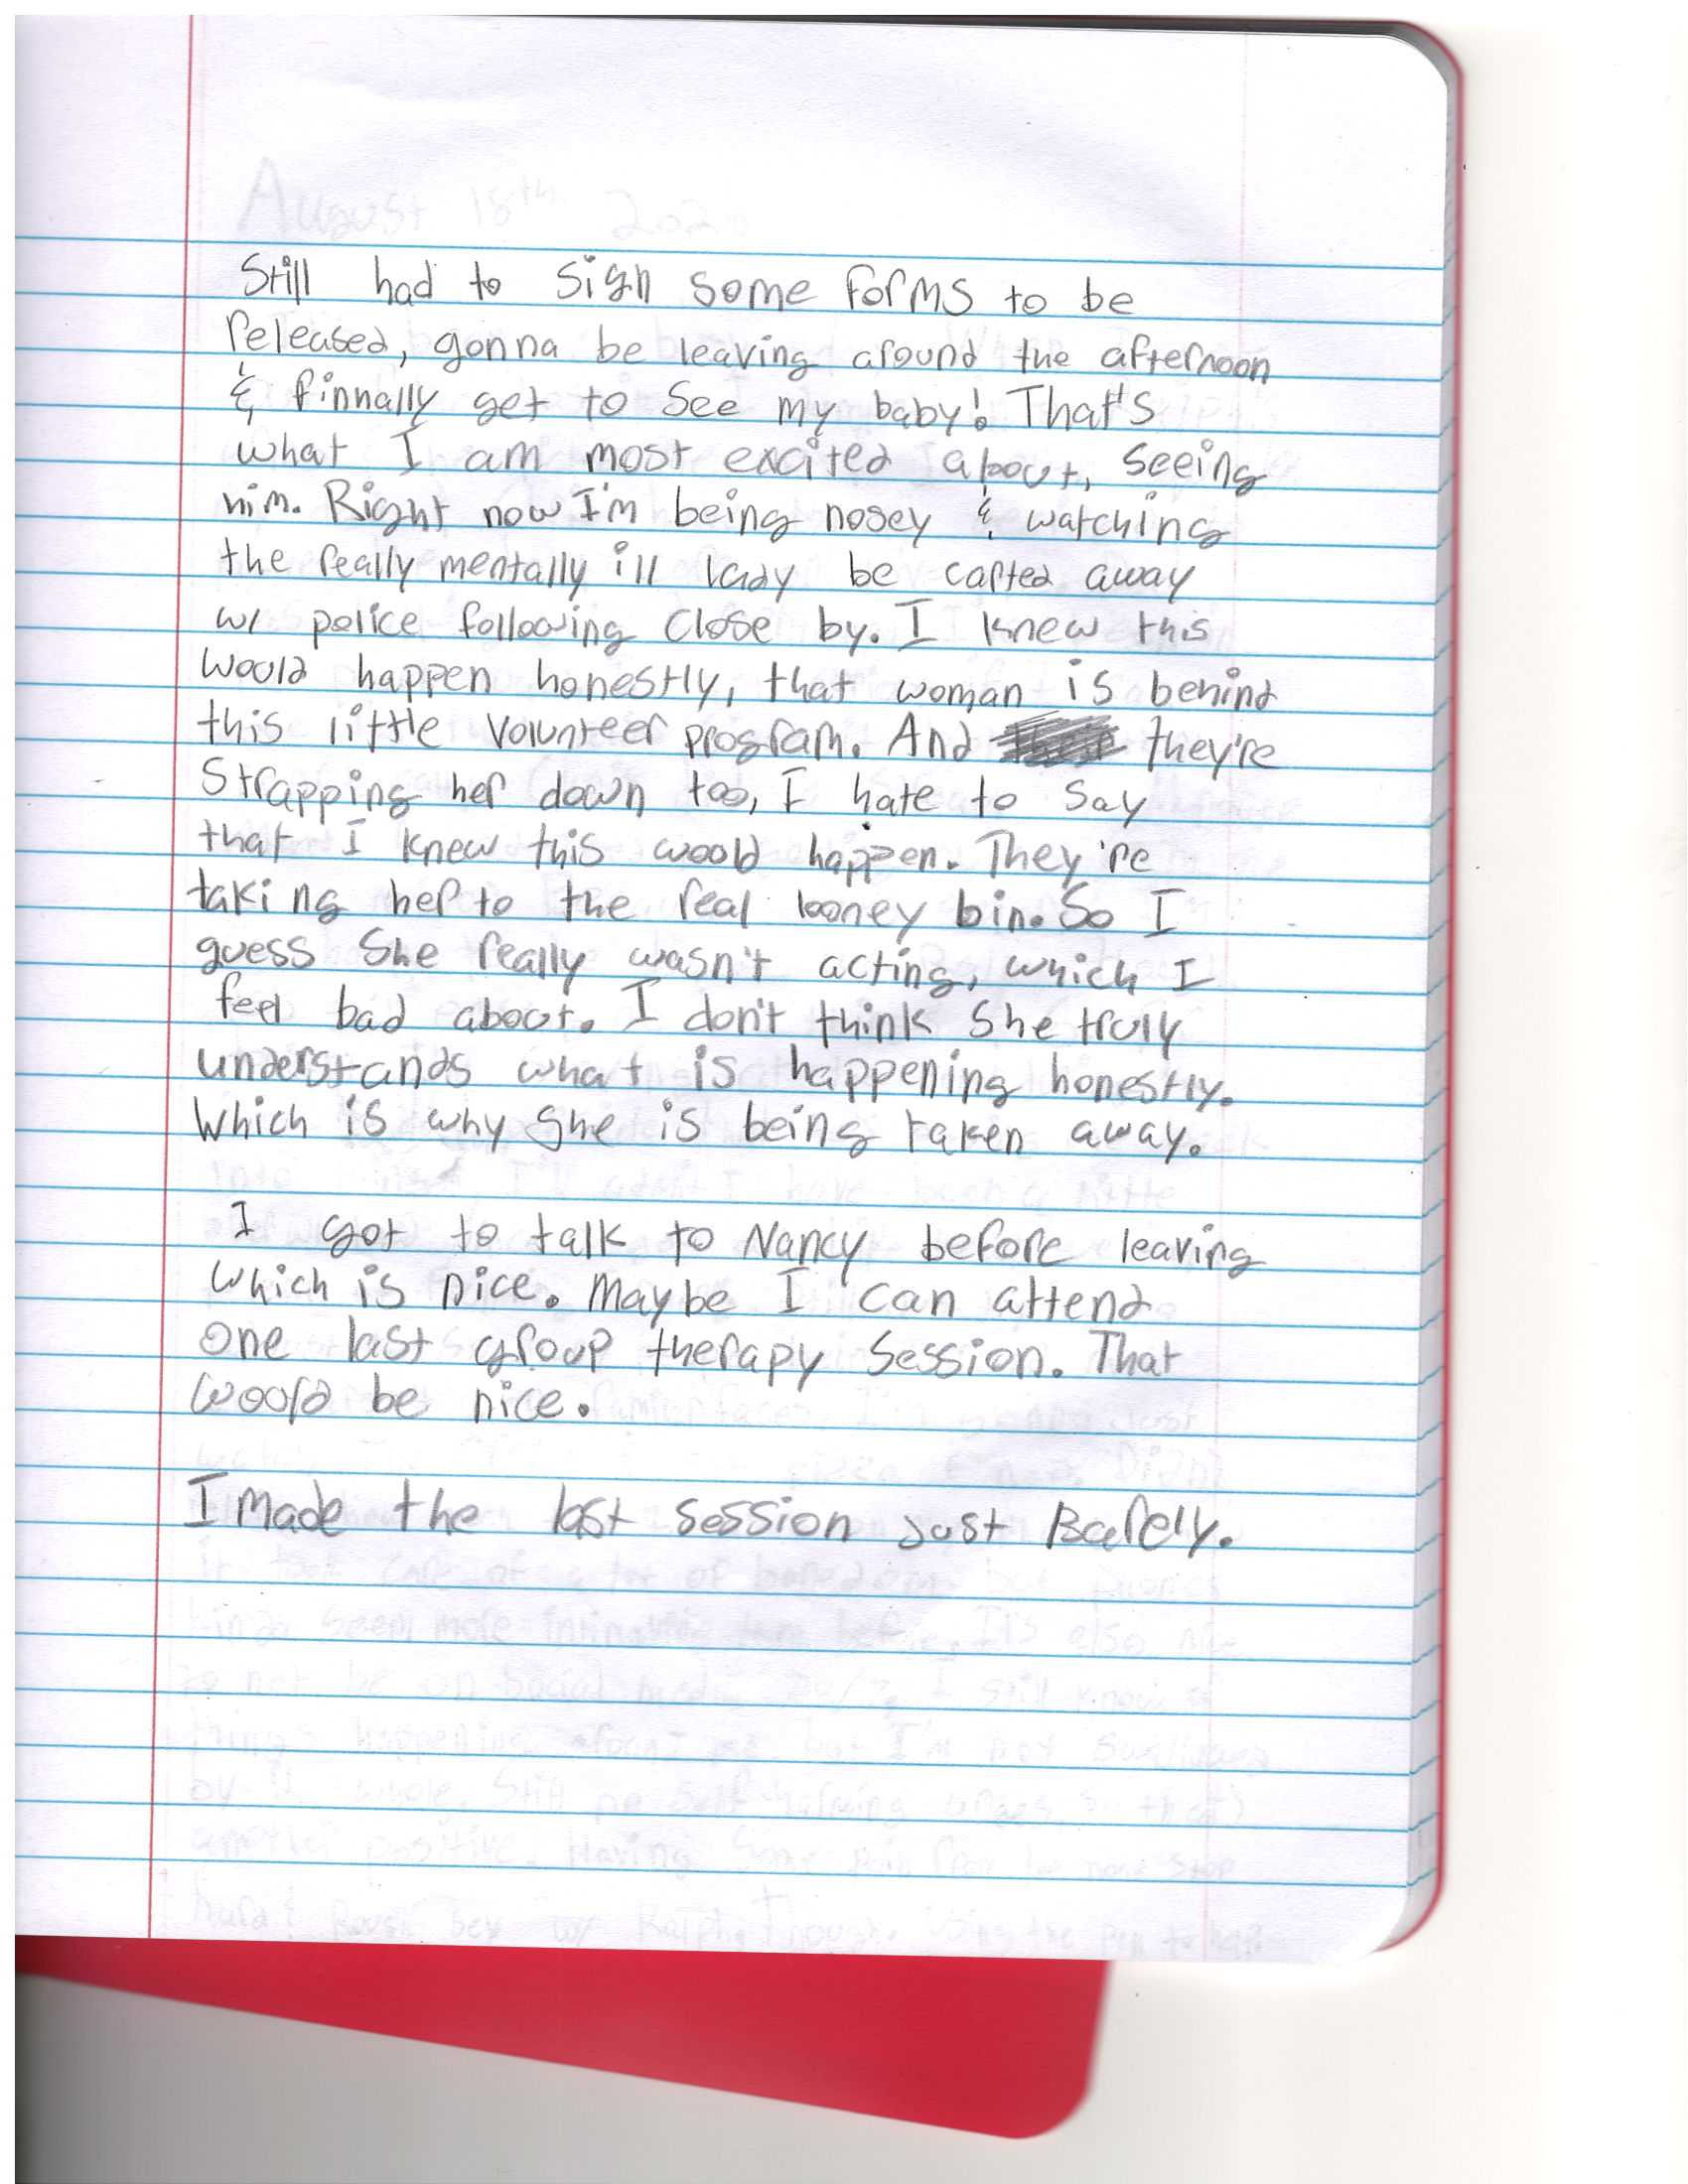 Still had to sign some forms to be
released, gonna be leaving around the afternoon
& finnally get to see my baby! That's
what I am most excited about, seeing
him. Right now I'm being nosey & watching
the really mentally ill lady be carted away
w/ police following close by. I knew this
would happen honestly, that woman is behind
this little volunteer program. And they're
strapping her down too, I hate to say
that I knew this woold happen. They're
taking her to the real looney bin. So I
guess she really wasn't acting, which I
feel bad about. I don't think she truly
understands what is happening honestly.
Which is why she is being taken away.
I got to talk to Nancy before leaving
which is nice. Maybe I can attend
one last group therapy session. That
would be nice.
I made the last session just Barely.